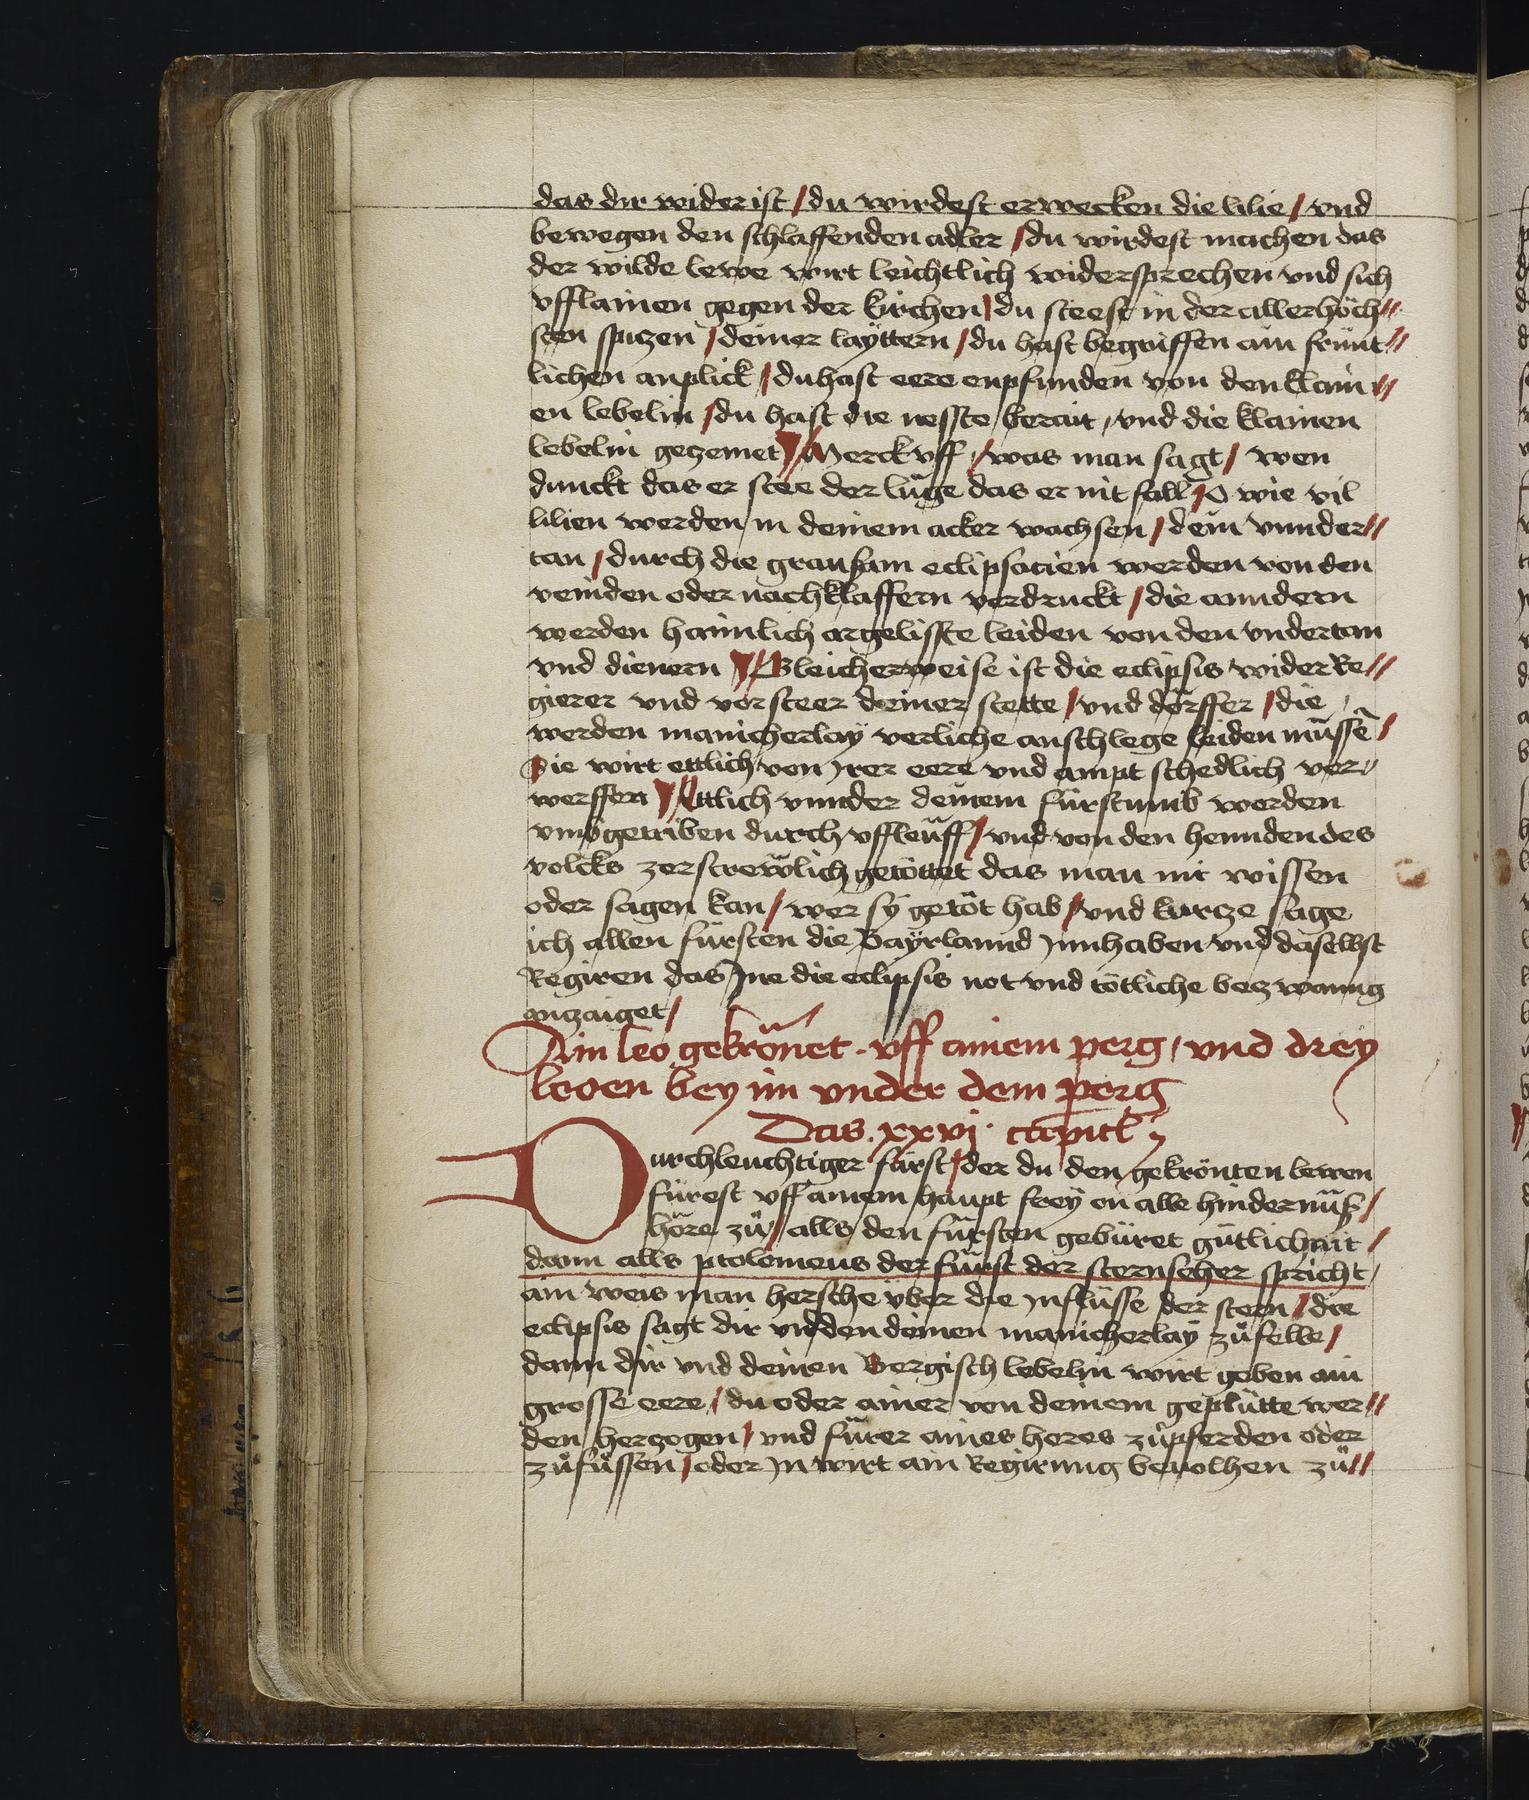 das dir wider ist / du wirdest erwecken die lilie / vnd
bewegen den schlaffenden adler / du wirdest machen das
der wilde lewe wirt leichtlich widersprechen vnd sich
vfflainen gegen der kirchen / du steest in der allerhöch//
sten spizen / deiner layttern / du hast begriffen ain frünt//
lichen anplick / du hast eere enpfunden von den klain//
en lebelin / du hast die nesste berait / vnd die klainen
lebelin gezemet // Merck vff / was man sagt / wen
dunckt das er stee der luge das er nit fall / O wie vil
lilien werden in deinem acker wachsen / dein vnnder//
tan / durch die grausam eclipsacien werden von den
veinden oder nachklaffern verdruckt / die anndern
werden haimlich argelisste leiden von den vndertan
vnd dienern // Gleicherweise ist die eclipsis wider Re//
gierer vnd vorsteer deiner stette / vnd dörffer / die
werden manicherlay verliche anschlege leiden müssē /
Sie wirt ettlich von Jrer eere vnd ampt schedlich ver//
werffen // Ettlich vnnder deinem fürstumb werden
vmbgetriben durch vffleüff / vnd von den hennden des
volcks zerstrewlich getöttet das man nit wissen
oder sagen kan / wer sy getöt hab / vnd kurcze sage
ich allen fürsten die Bayrlannd Jnnhaben vnd daselbst
Regiren das Jne die eclipsis not vnd tötliche bezwanng
anzaiget /
Ain leo gekrönet . vff ainem perg / vnd drey
leoen bey im vnder dem perg
Das . xxvj . capitl
Durchleuchtiger fürst / der du den gekrönten lewen
fürest vff ainem haupt frey on alle hindernüß /
höre zů / alls den fürsten gebüret gütlichait /
dann alls ptolomeus der fürst der sternseher spricht /
ain weis man hersche vber die Jnflüsse der stern / die
eclipsis sagt dir vnd den deinen manicherlay zůfelle /
dann dir vnd deinen Bergisch lebelin wirt geben ain
grosse eere / du oder ainer von deinem geplütte wer//
den herzogen / vnd fürer aines heres zůpferden oder
zůfüssen / oder Jn wirt ain Regirung beuolhen zů//